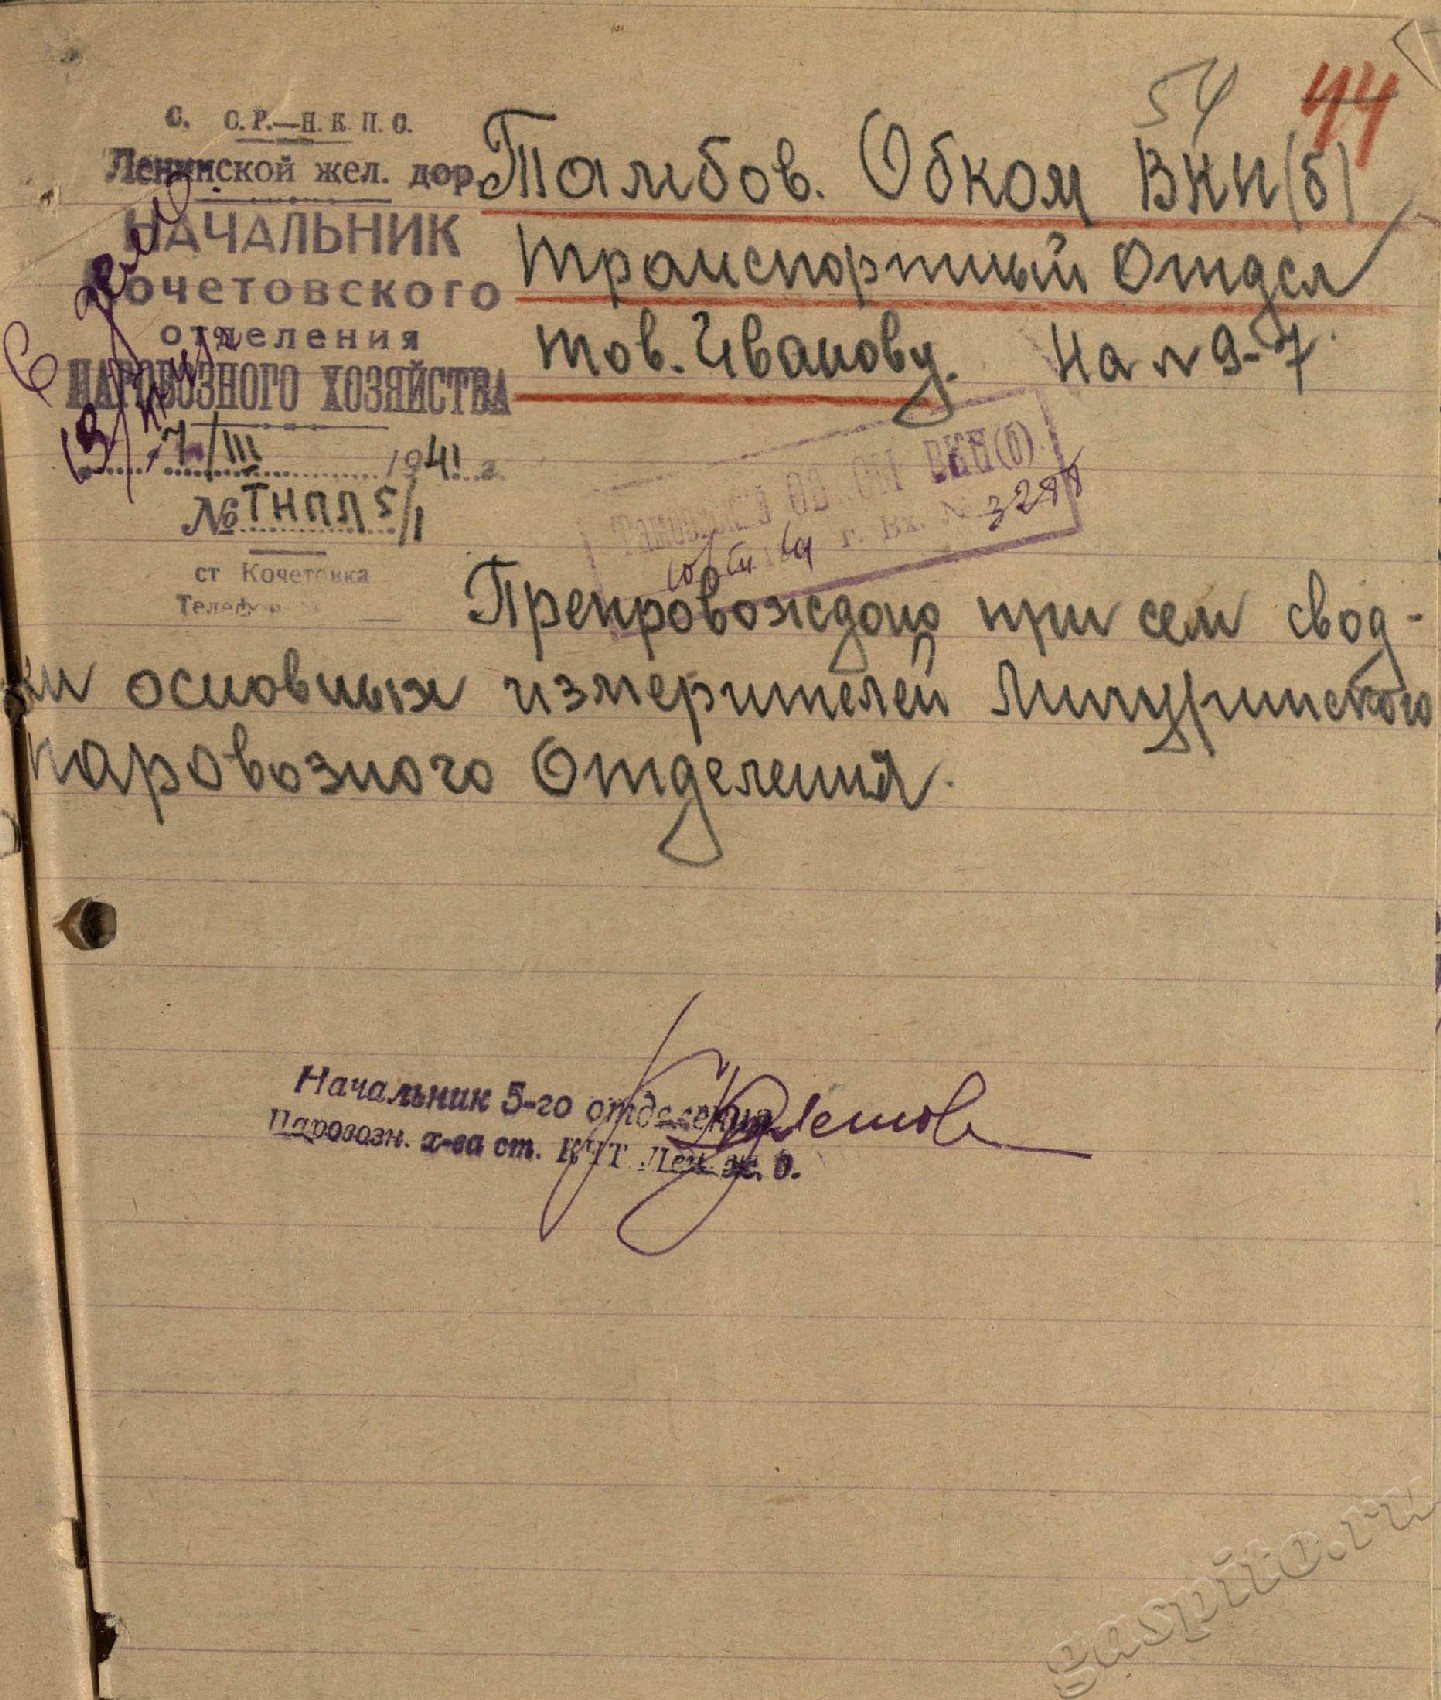 54 44
С. С.Р.—Н.К.П.С.
Ленинской жел. дор.
НАЧАЛЬНИК
Кочетовского
отделения
ПАРОВОЗНОГО ХОЗЯЙСТВА
7/III 1941 г.
№ ТНПЛ5/1
ст Кочетовка
Телефон
В дело
13/III
Тамбов. Обком ВКП(б)
транспортный Отдел
тов. Иванову. На № 9-7.
ВКП(б)
г. Вх. №
Препровождаю при сем свод-
ки основных измерителей Мичуринского
паровозного Отделения.
Начальник 5-го отделения
Паровозн. х-ва ст. КЧТ Лен. ж. д.
gaspito.ru